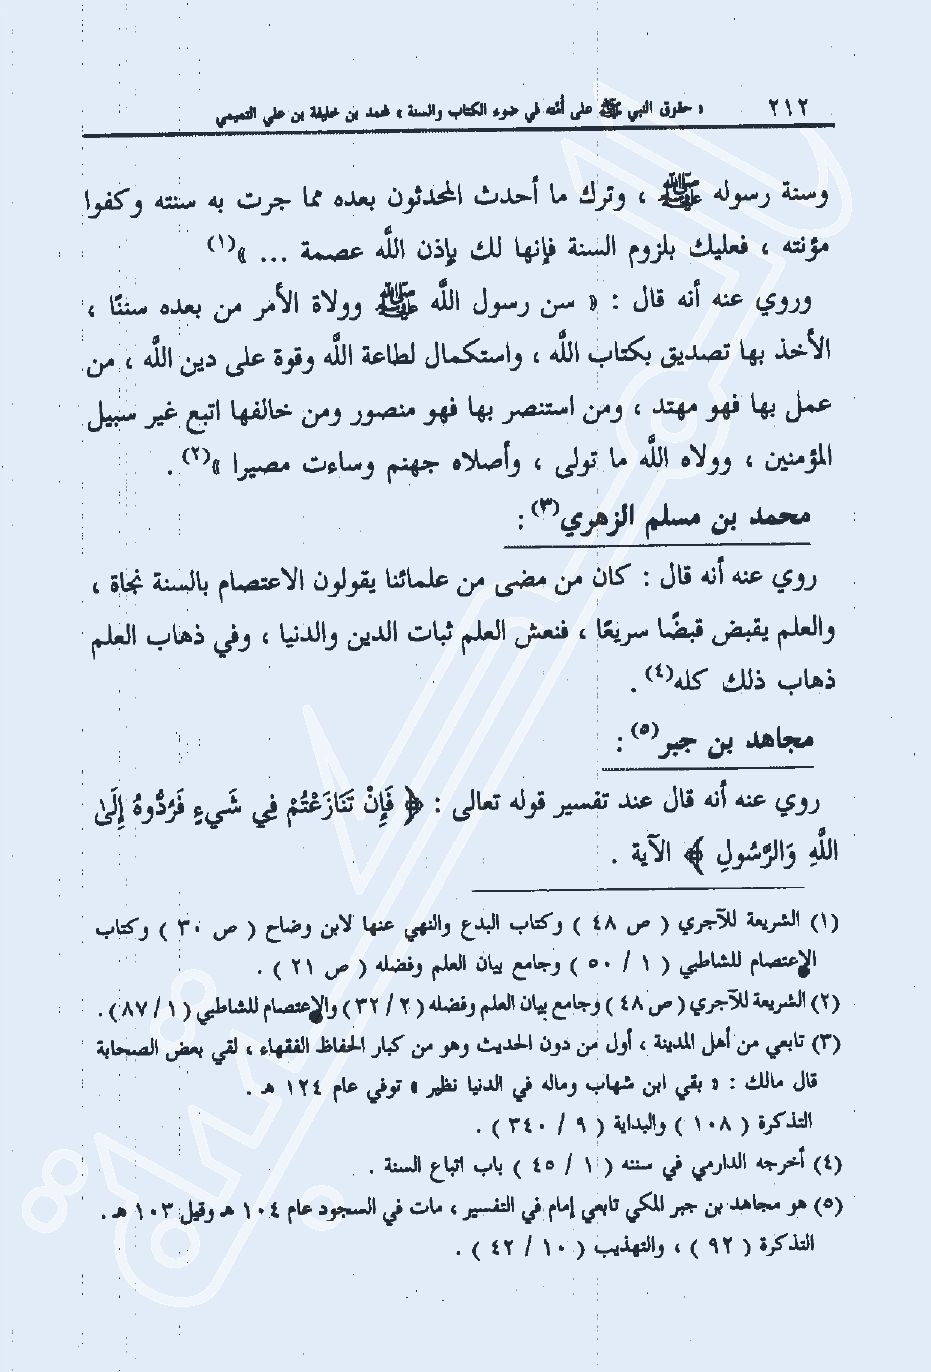 ٢١٢ « حقوق النبي ﷺ على أمته في ضوء الكتاب والسنة » محمد بن خليفة بن علي التميمي
وسنة رسوله ﷺ ، وترك ما أحدث المحدثون بعده مما جرت به سنته وكفوا
مؤنته ، فعليك بلزوم السنة فإنها لك بإذن اللَّه عصمة ... »(١)
وروي عنه أنه قال : « سن رسول اللَّه ﷺ وولاة الأمر من بعده سننًا ،
الأخذ بها تصديق بكتاب اللَّه ، واستكمال لطاعة اللَّه وقوة على دين اللَّه ، من
عمل بها فهو مهتد ، ومن استنصر بها فهو منصور ومن خالفها اتبع غير سبيل
المؤمنين ، وولاه اللَّه ما تولى ، وأصلاه جهنم وساءت مصيرا »(٢) .
محمد بن مسلم الزهري(٣) :
روي عنه أنه قال : كان من مضى من علمائنا يقولون الاعتصام بالسنة نجاة ،
والعلم يقبض قبضًا سريعًا ، فنعش العلم ثبات الدين والدنيا ، وفي ذهاب العلم
ذهاب ذلك كله(٤) .
مجاهد بن جبر(٥) :
روي عنه أنه قال عند تفسير قوله تعالى : ﴿ فَإِنْ تَنَازَعْتُمْ فِي شَيءٍ فَرُدُّوهُ إِلَىٰ
اللَّهِ وَالرَّسُولِ ﴾ الآية .
(١) الشريعة للآجري ( ص ٤٨ ) وكتاب البدع والنهي عنها لابن وضاح ( ص ٣٠ ) وكتاب
الإعتصام للشاطبي ( ١ / ٥٠ ) وجامع بيان العلم وفضله ( ص ٢١ ) .
(٢) الشريعة للآجري ( ص ٤٨ ) وجامع بيان العلم وفضله ( ٢ / ٣٢ ) والإعتصام للشاطبي ( ١ / ٨٧ ) .
(٣) تابعي من أهل المدينة ، أول من دون الحديث وهو من كبار الحفاظ الفقهاء ، لقي بعض الصحابة
قال مالك : « بقي ابن شهاب وماله في الدنيا نظير » توفي عام ١٢٤ هـ .
التذكرة ( ١٠٨ ) والبداية ( ٩ / ٣٤٠ ) .
(٤) أخرجه الدارمي في سننه ( ١ / ٤٥ ) باب اتباع السنة .
(٥) هو مجاهد بن جبر المكي تابعي إمام في التفسير ، مات في السجود عام ١٠٤ هـ وقيل ١٠٣ هـ .
التذكرة ( ٩٢ ) ، والتهذيب ( ١٠ / ٤٢ ) .